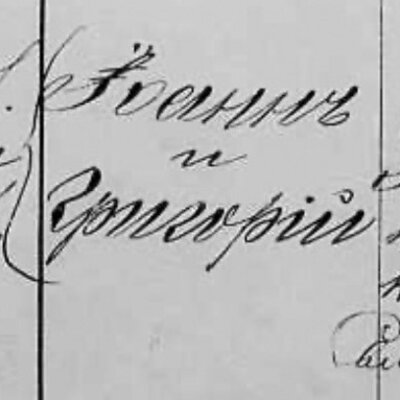 Іоаннъ
и
Григорій